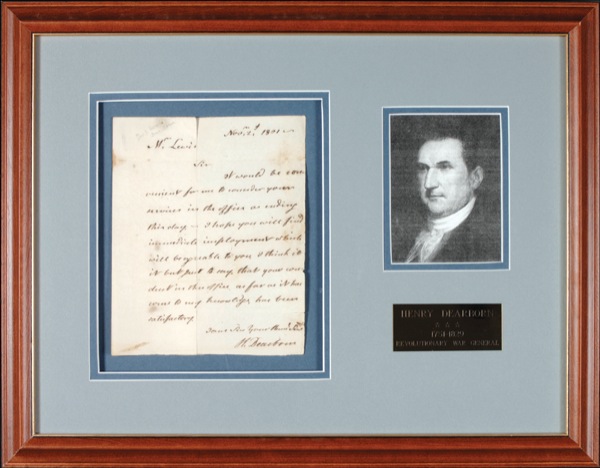 Novr. 2d. 1801
Mr. Lewis
Sir
it would be con
venient for me to consider your
services in the office as ending
this day — I hope you will find
immediate imployment which
will be agreable to you I think it
it but just to say that your con
duct in this office as far as it has
come to my knowledge has been
satisfactory
Your
H. Dearborn
HENRY DEARBORN
☆ ☆ ☆
1751-1829
REVOLUTIONARY WAR GENERAL